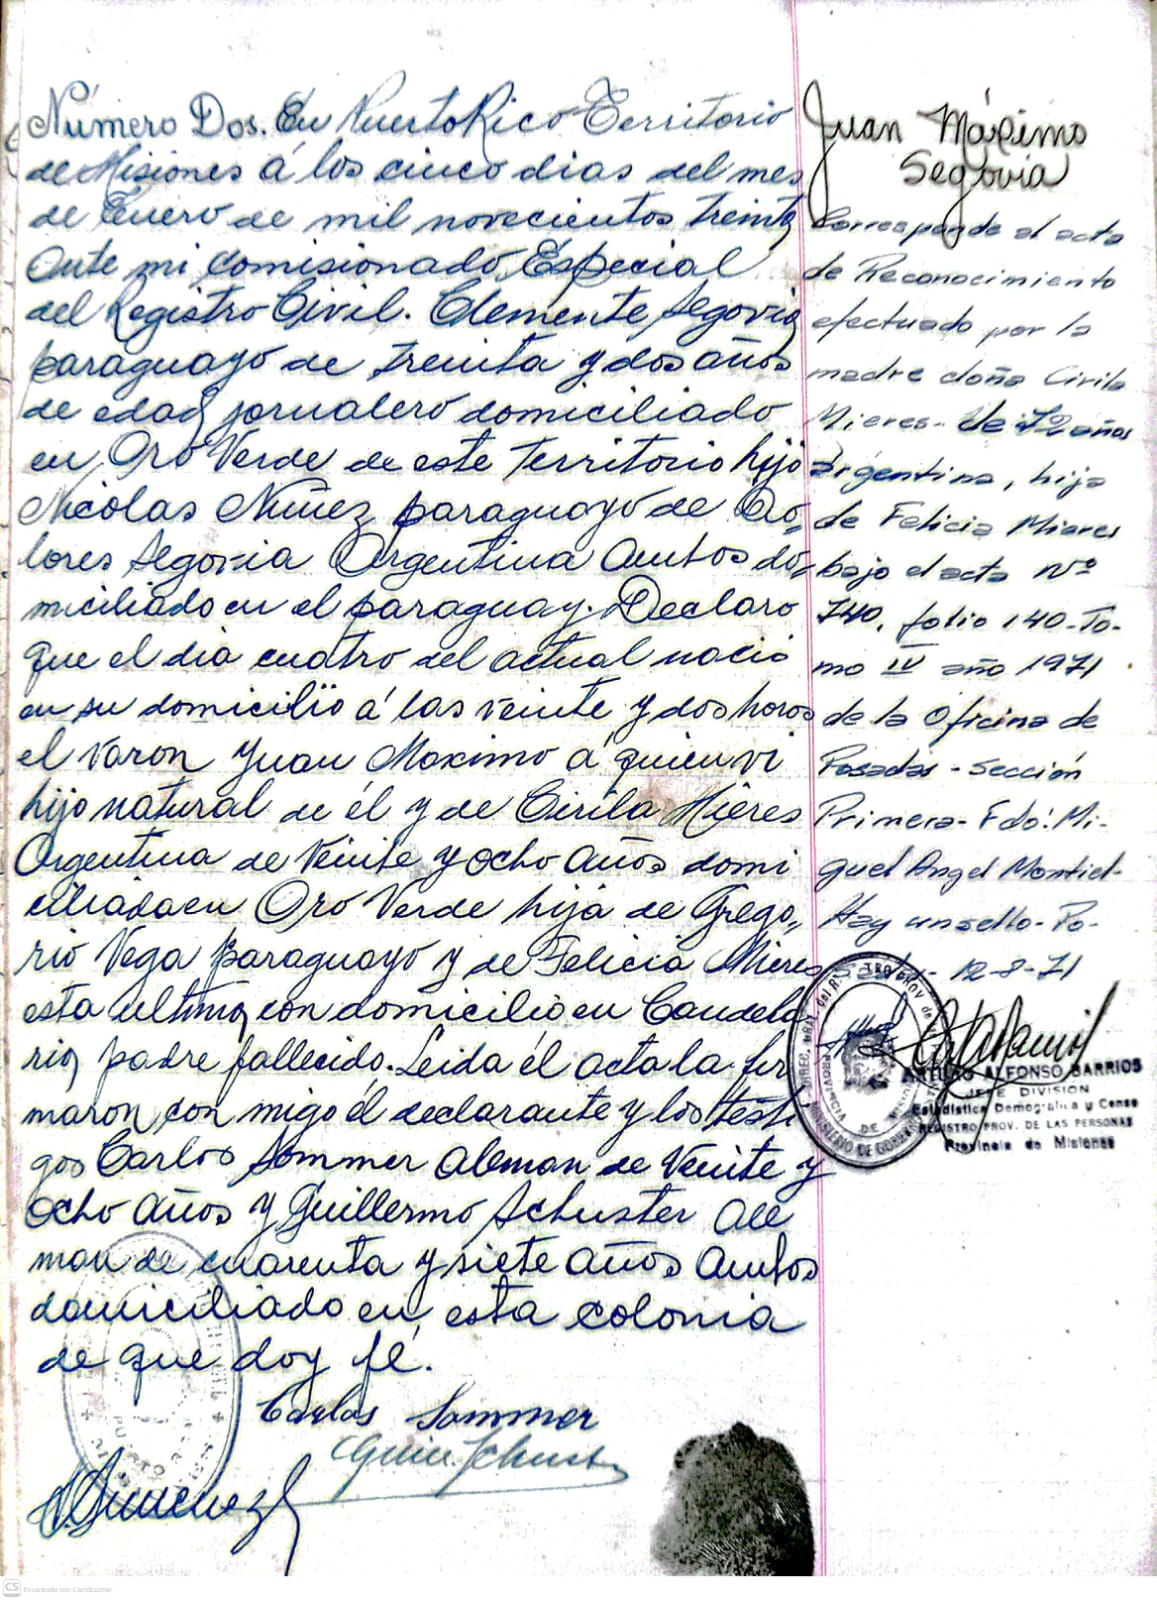 Número Dos. En Puerto Rico Territorio
de Misiones á los cinco dias del mes
de Enero de mil novecientos treinta
Ante mi Comisionado Especial
del Registro Civil. Clemente Segovia
paraguayo de treinta y dos años
de edad jornalero domiciliado
en Oro Verde de este territorio hijo
Nicolas Nuñez paraguayo de Do,
lores Segovia Argentina Ambos do,
miciliado en el paraguay. Declaro
que el dia cuatro del actual nació
en su domicilio á las veinte y dos horas
el Varon Juan Maximo á quien vi
hijo natural de él y de Cirila Mieres
Argentina de Veinte y ocho años domi
ciliada en Oro Verde hija de Grego,
rio Vega paraguayo y de Felicia Mieres
esta ultima con domicilio en Candela
ria padre fallecido. Leida el acta la fir
maron con migo el declarante y los testi
gos Carlos Sommer Aleman de Veinte y
Ocho Años y Guillermo Schuster Ale
man de cuarenta y siete años Ambos
domiciliado en esta colonia
de que doy fé.
Carlos Sommer
Guill. Schust
Gimenez
Juan Máximo
Segovia
Corresponde al acta
de Reconocimiento
efectuado por la
madre doña Cirila
Mieres - de 72 años
argentina, hija
de Felicia Mieres
bajo el acta Nº
740, folio 140-To-
mo IV año 1971
de la Oficina de
Posadas - Sección
Primera - Fdo: Mi-
guel Angel Montiel-
Hay un sello - Po-
12-8-71
ALFONSO BARRIOS
JEFE DIVISION
Estadística Demográfica y Censo
REGISTRO PROV. DE LAS PERSONAS
Provincia de Misiones
PROVINCIA DE
MINISTERIO DE
PUERTO
CS Escaneado con CamScanner